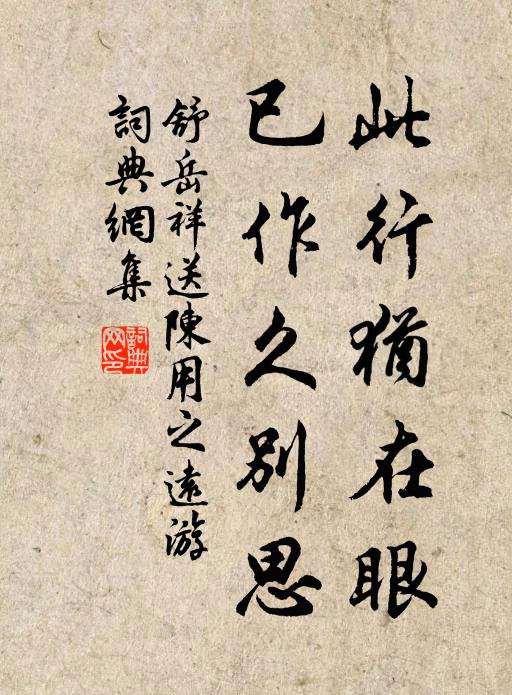 此行猶在眼
已作久別思
舒岳祥送陳用之遠游
詞典網集
詞典网印